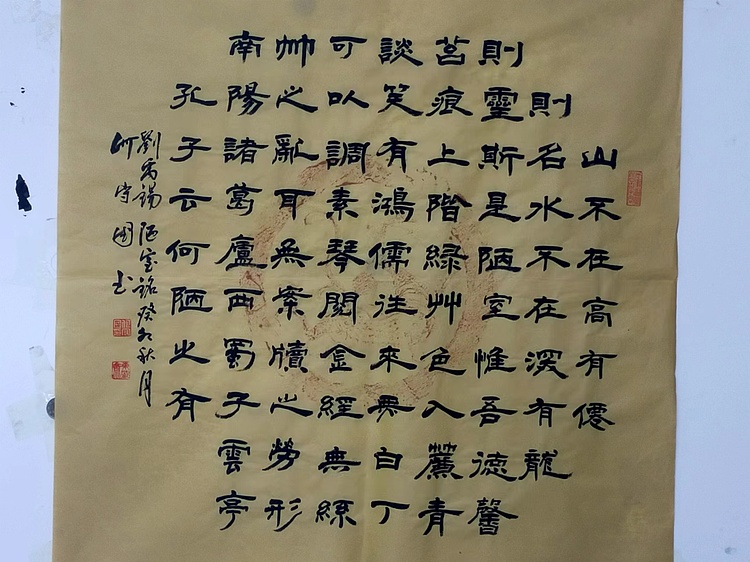 山不在高有僊
則名水不在深有龍
則靈斯是陋室惟吾德馨
苔痕上階緑艸色入簾青
談笑有鴻儒往來無白丁
可以調素琴閲金經無絲
竹之亂耳無案牘之勞形
南陽諸葛廬西蜀子雲亭
孔子云何陋之有
劉禹錫陋室銘癸卯秋月
何守國书